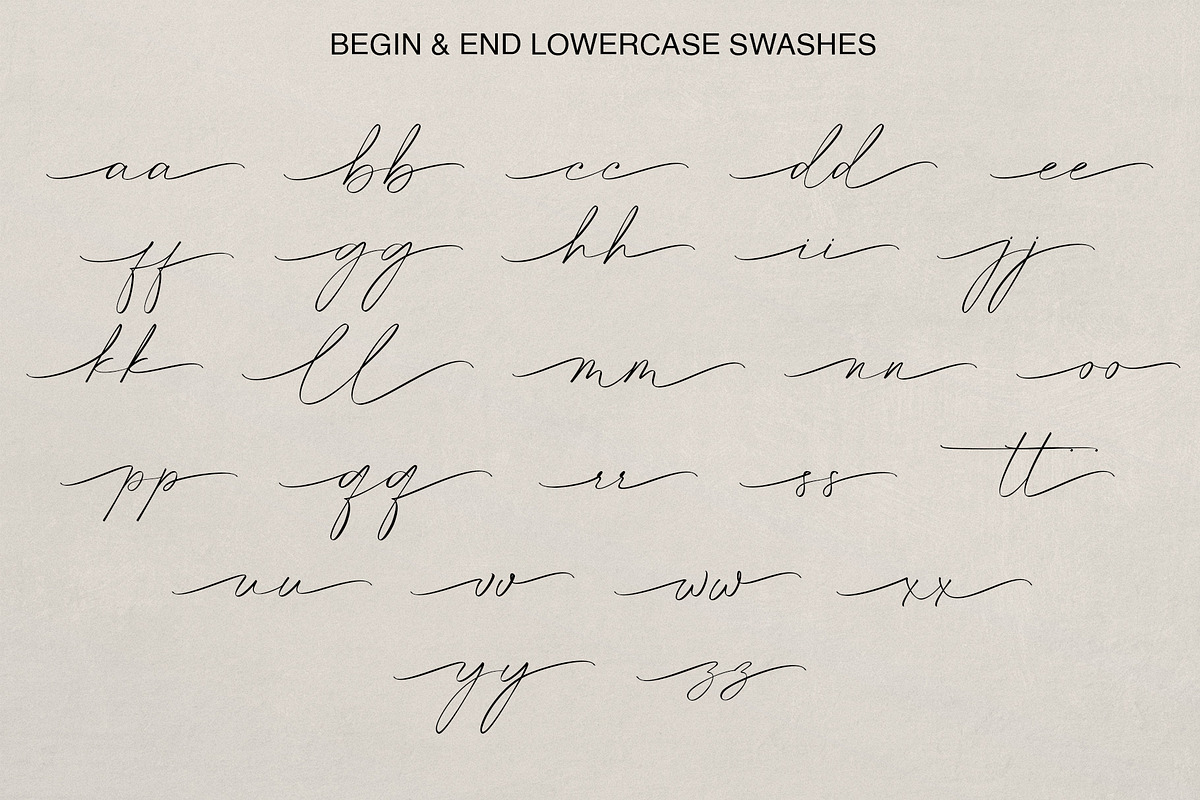 BEGIN & END LOWERCASE SWASHES
aa bb cc dd ee
ff gg hh ii jj
kk ll mm nn oo
pp qq rr ss tt
uu vv ww xx
yy zz